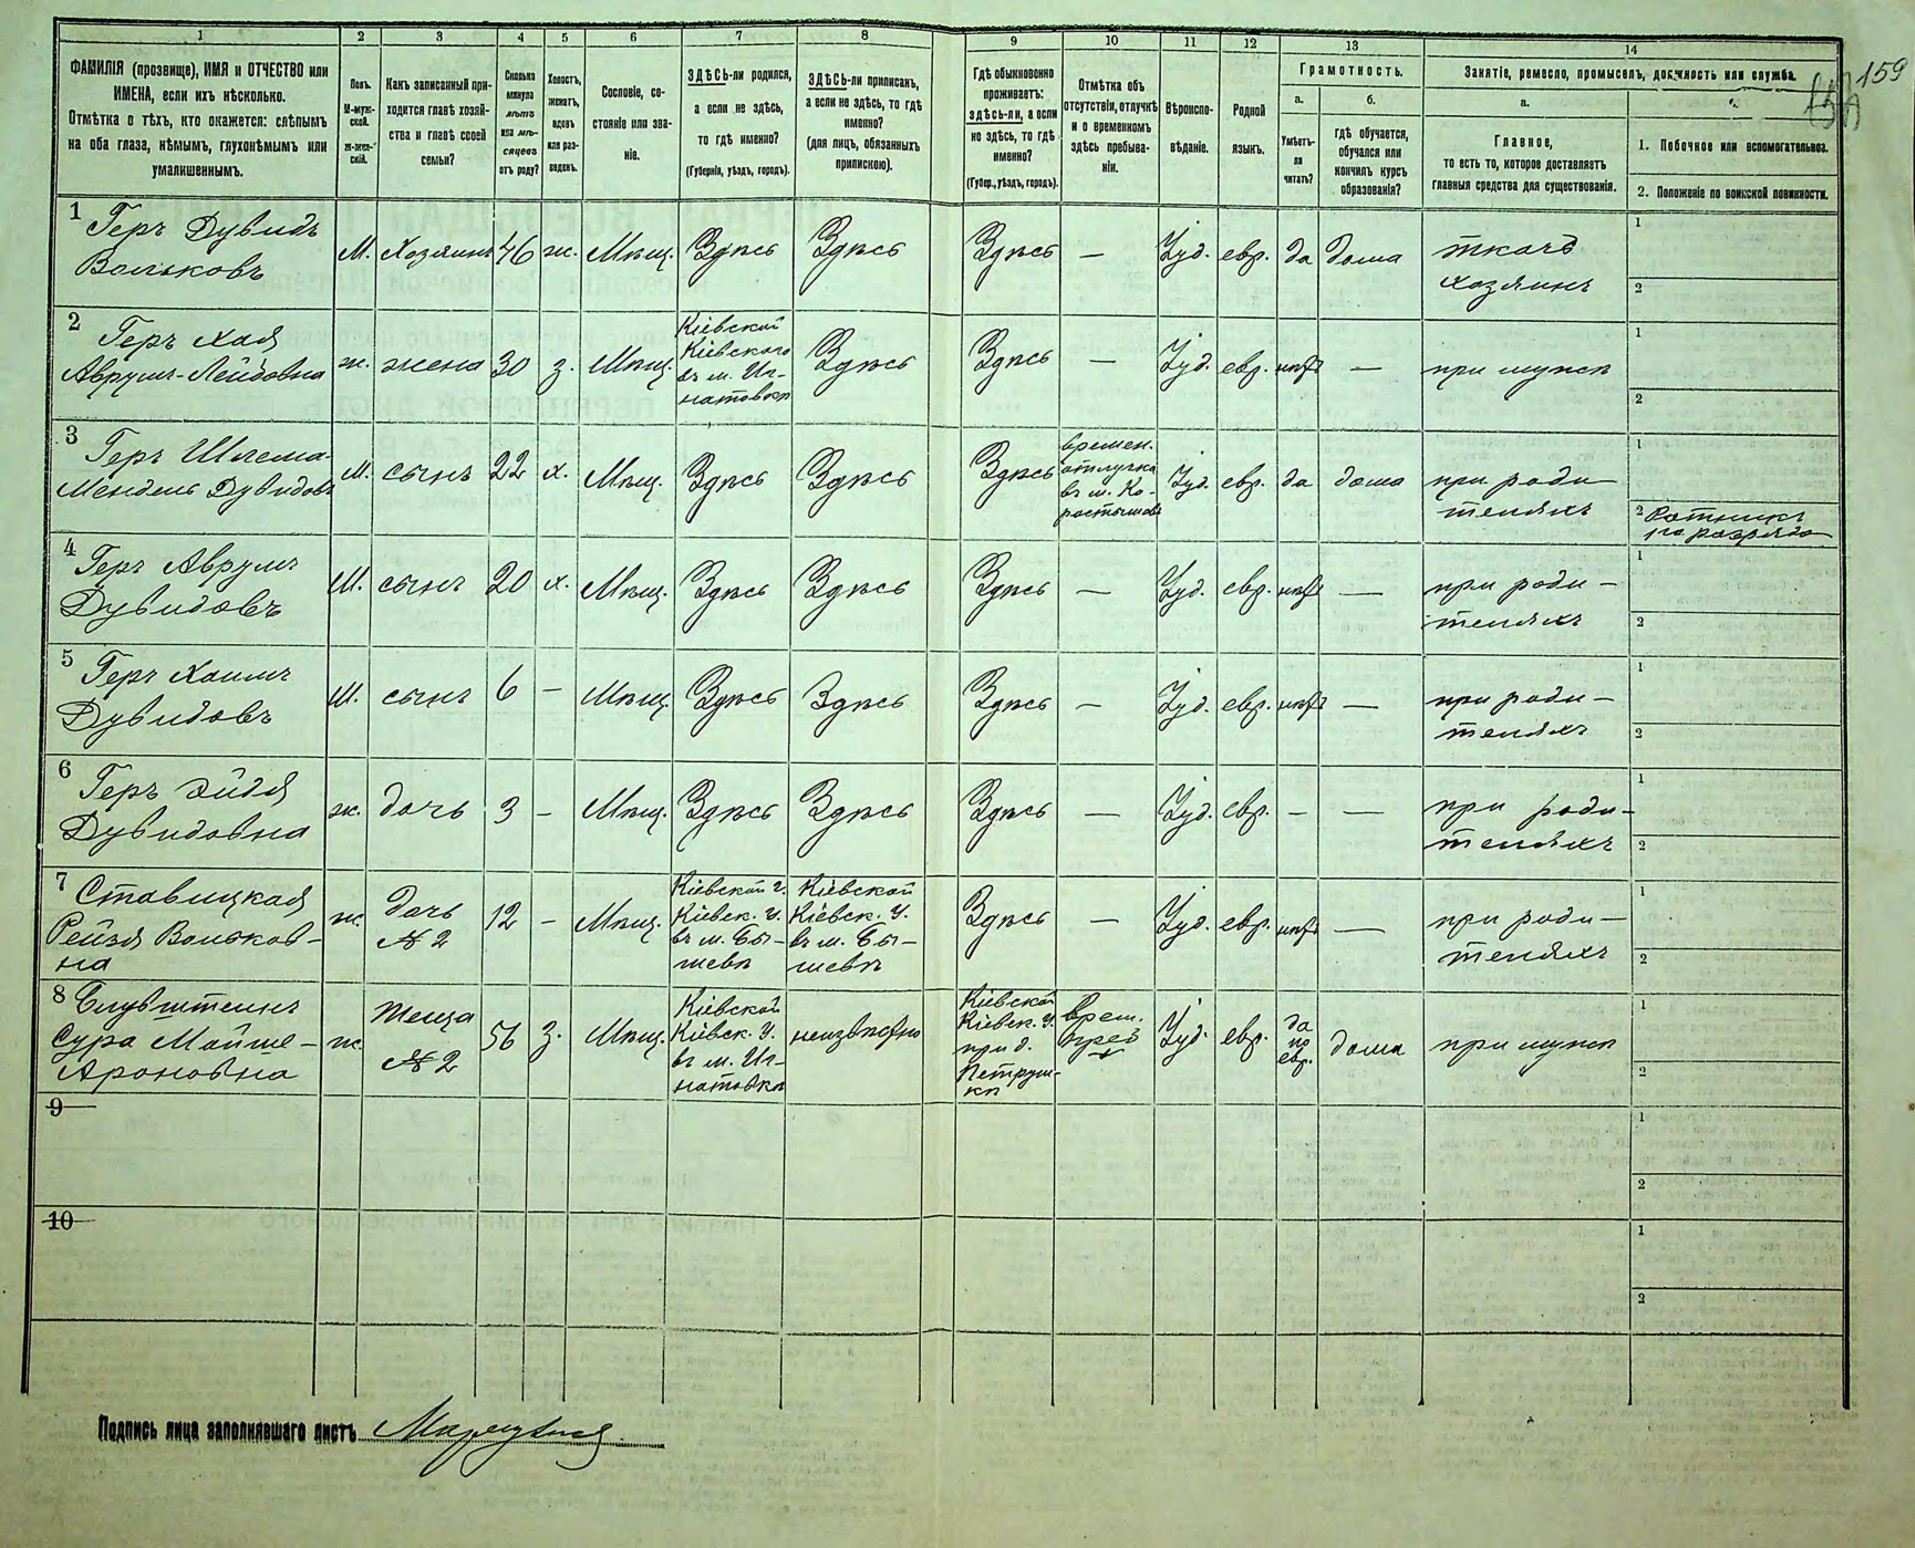 159
1 2 3 4 5 6 7 8 9 10 11 12 13 14
ФАМИЛІЯ (прозвище), ИМЯ и ОТЧЕСТВО или
ИМЕНА, если ихъ нѣсколько.
Отмѣтка о тѣхъ, кто окажется: слѣпымъ
на оба глаза, нѣмымъ, глухонѣмымъ или
умалишеннымъ.
Полъ.
М-муж-
ской.
Ж-жен-
скій.
Какъ записанный при-
ходится главѣ хозяй-
ства и главѣ своей
семьи?
Сколько
минуло
лѣтъ
или мѣ-
сяцевъ
отъ роду?
Холостъ,
женатъ,
вдовъ
или раз-
веденъ.
Сословіе, со-
стояніе или зва-
ніе.
ЗДѢСЬ-ли родился,
а если не здѣсь,
то гдѣ именно?
(Губернія, уѣздъ, городъ).
ЗДѢСЬ-ли приписанъ,
а если не здѣсь, то гдѣ
именно?
(для лицъ, обязанныхъ
припискою).
Гдѣ обыкновенно
проживаетъ:
здѣсь-ли, а если
не здѣсь, то гдѣ
именно?
(Губер., уѣздъ, городъ).
Отмѣтка объ
отсутствіи, отлучкѣ
и о временномъ
здѣсь пребыва-
ніи.
Вѣроиспо-
вѣданіе.
Родной
языкъ.
Грамотность.
а. б.
Умѣетъ-
ли
читать?
гдѣ обучается,
обучался или
кончилъ курсъ
образованія?
Занятіе, ремесло, промыселъ, должность или служба.
а.
Главное,
то есть то, которое доставляетъ
главныя средства для существованія.
1. Побочное или вспомогательное.
2. Положеніе по воинской повинности.
1 Геръ Дувидъ
Вольковъ
М. Хозяинъ 46 ж. Мѣщ. Здѣсь Здѣсь Здѣсь — Іуд. евр. да дома
ткачъ
хозяинъ
1
2
2 Геръ Хая
Аврумъ-Лейбовна
ж. жена 30 з. Мѣщ.
Кіевской
Кіевскаго
въ м. Иг-
натовкѣ
Здѣсь Здѣсь — Іуд. евр. нѣтъ — при мужѣ
1
2
3 Геръ Шлема-
Мендель Дувидовъ
М. сынъ 22 х. Мѣщ. Здѣсь Здѣсь Здѣсь
времен.
отлучка
въ м. Ко-
ростышовѣ
Іуд. евр. да дома
при роди-
теляхъ
1
2 Ратникъ
1го разряда
4 Геръ Аврумъ
Дувидовъ
М. сынъ 20 х. Мѣщ. Здѣсь Здѣсь Здѣсь — Іуд. евр. нѣтъ —
при роди-
теляхъ
1
2
5 Геръ Хаимъ
Дувидовъ
М. сынъ 6 — Мѣщ. Здѣсь Здѣсь Здѣсь — Іуд. евр. нѣтъ —
при роди-
теляхъ
1
2
6 Геръ Эйдя
Дувидовна
ж. дочь 3 — Мѣщ. Здѣсь Здѣсь Здѣсь — Іуд. евр. — —
при роди-
теляхъ
1
2
7 Ставицкая
Рейзя Вольков-
на
ж. дочь
№ 2
12 — Мѣщ.
Кіевской г.
Кіевск. у.
въ м. Бы-
шевѣ
Кіевской
Кіевск. у.
въ м. Бы-
шевѣ
Здѣсь — Іуд. евр. нѣтъ —
при роди-
теляхъ
1
2
8 Блувштейнъ
Сура Мойше-
Ароновна
ж. Теща
№ 2
56 з. Мѣщ.
Кіевской
Кіевск. у.
въ м. Иг-
натовкѣ
неизвѣстно
Кіевской
Кіевск. у.
при д.
Петруш-
кѣ
врем.
преб
Іуд. евр.
да
по
евр.
дома при мужѣ
1
2
9
1
2
10
1
2
Подпись лица заполнявшаго листъ